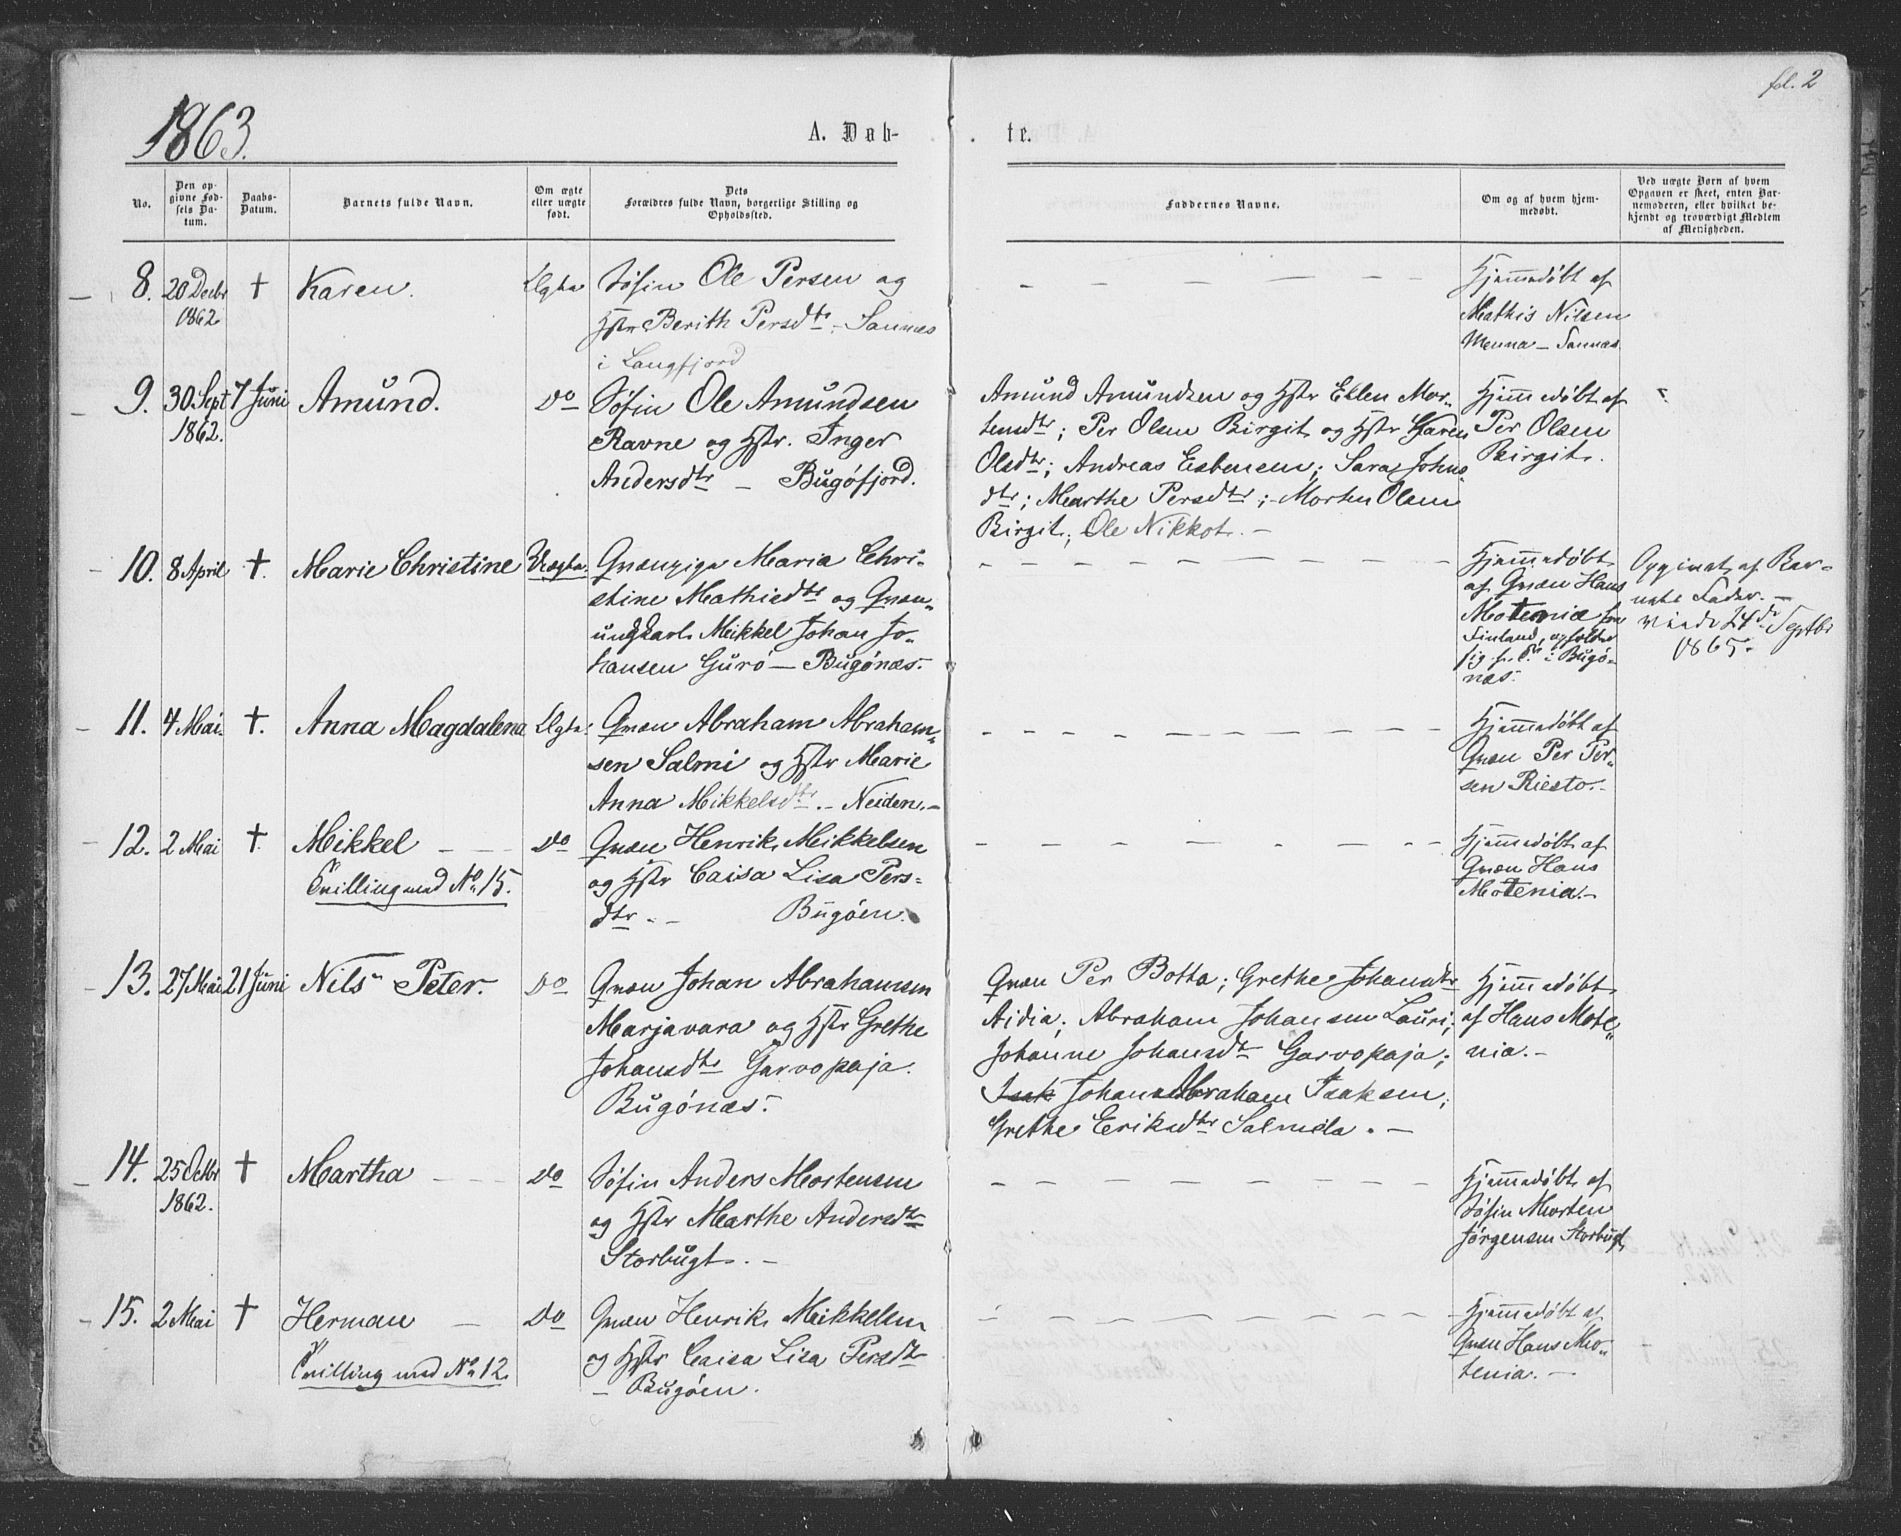 fol. 2
1863.
A. Døb-
te.
No.
Den op-
givne Fød-
sels Da-
tum.
Daabs-
Datum.
Barnets fulde Navn.
Om ægte
eller uægte
født.
Dets
Forældres fulde Navn, borgerlige Stilling og
Opholdssted.
Faddernes Navne.
Om og af hvem hjem-
medøbt.
Ved uægte Børn af hvem
Opgaven er skeet, enten Bar-
nemoderen, eller hvilket be-
kjendt og troværdigt Medlem
af Menigheden.
8.
20 Decbr
1862.
†
Karen.
Ægte
Søfin Ole Persen og
Hstr Berith Persdtr - Sannes
i Langfjord
Hjemmedøbt af
Mathis Nilsen
Menna - Sannes.
9.
30 Sept
1862.
7 Juni
Amund.
Do
Søfin Ole Amundsen
Ravne og Hstr. Inger
Andersdtr - Bugøfjord.
Amund Amundsen og Hstr Ellen Mor-
tensdtr; Per Olsen Birgit og Hstr Karen
Olsdtr; Andreas Esbensen; Sara Johns
dtr; Marthe Persdtr; Morten Olsen
Birgit; Ole Nikkot. -
Hjemmedøbt af
Per Olsen
Birgit.
10.
8 April
†.
Marie Christine
Uægte
Qvænpige Maria Chri-
stine Mathisdtr og Qvæn-
ungkarl Mikkel Johan Jo-
hansen Guro - Bugønæs.
Hjemmedøbt
af Qvæn Hans
Motenia fra
Finland, opholder
sig p. t. i Bugø-
næs.
Opgivet af Bar-
nets Fader. -
24de Septbr
1865.
11.
4 Mai
†.
Anna Magdalena
Ægte.
Qvæn Abraham Abraham-
sen Salmi og Hstr Marie
Anna Mikkelsdtr. - Neiden. -
Hjemmedøbt af
Qvæn Per Per-
sen Riesto. -
12.
2 Mai
†.
Mikkel
Tvilling med No 15.
Do
Qvæn Henrik Mikkelsen
og Hstr Caisa Lisa Pers-
dtr. - Bugøen.
Hjemmedøbt af
Qvæn Hans
Motenia. -
13.
27 Mai
21 Juni
Nils Peter.
Do
Qvæn Johan Abrahamsen
Marjavara og Hstr Grethe
Johansdtr Garvopaja.
Bugønæs.
Qvæn Per Botta; Grethe Johansdtr
Aidia; Abraham Johansen Lauri;
Johanne Johansdtr Garvopaja;
Isak Johan Abraham Isaksen;
Grethe Eriksdtr Salmela. -
Hjemmedøbt
af Hans Mote-
nia. -
14.
25 Octbr
1862.
†
Martha
Do
Søfin Anders Mortensen
og Hstr Marthe Andersdtr
Storbugt. -
Hjemmedøbt af
Søfin Morten
Jørgensen Storbugt
15.
2 Mai
†
Herman
Tvilling med No 12.
Do
Qvæn Henrik Mikkelsen
og Hstr Caisa Lisa Persdtr
- Bugøen.
Hjemmedøbt af
Qvæn Hans Mo-
tenia. -